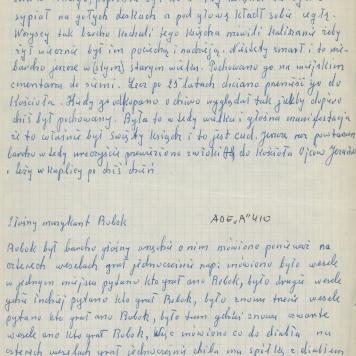 sypiał na gołych deskach a pod głowę kładł sobie cegłę.
Wszyscy tak bardzo kochali jego księdza mówili
żył wiecznie był im pociechą i nadzieją. Niestety zmarł i to nie-
bardzo jeszcze w(stym) starym wieku. Pochowano go na miejskim
cmentarzu do ziemi. Lecz po 25 latach chciano przenieść go do
Kościoła. Kiedy go odkopano o dziwo wyglądał tak jakby dopiero
dziś był pochowany. Była to wtedy wielka i głośna manifestacja
że to właśnie był święty ksiądz i to jest cud. Jeszcze raz
bardzo wtedy uroczyście przewieziono zwłoki do Kościoła Ojców
i leży w kaplicy po dziś dzień
Słynny muzykant Robok
ADE "A" 410
Robok był bardzo głośny wszędzie o nim mówiono ponieważ na
czterech weselach grał jednocześnie nap: mówiono było wesele
w jednym miejscu pytano kto grał ano Robok, było drugie wesele
gdzie indziej pytano kto grał Robok, było znowu trzecie wesele
pytano kto grał ano Robok, było tam gdzieś znowu czwarte
wesele ano kto grał Robok, więc mówiono co do diabła na
czterech weselach grał jednocześnie chiba ma spółkę z diabłem